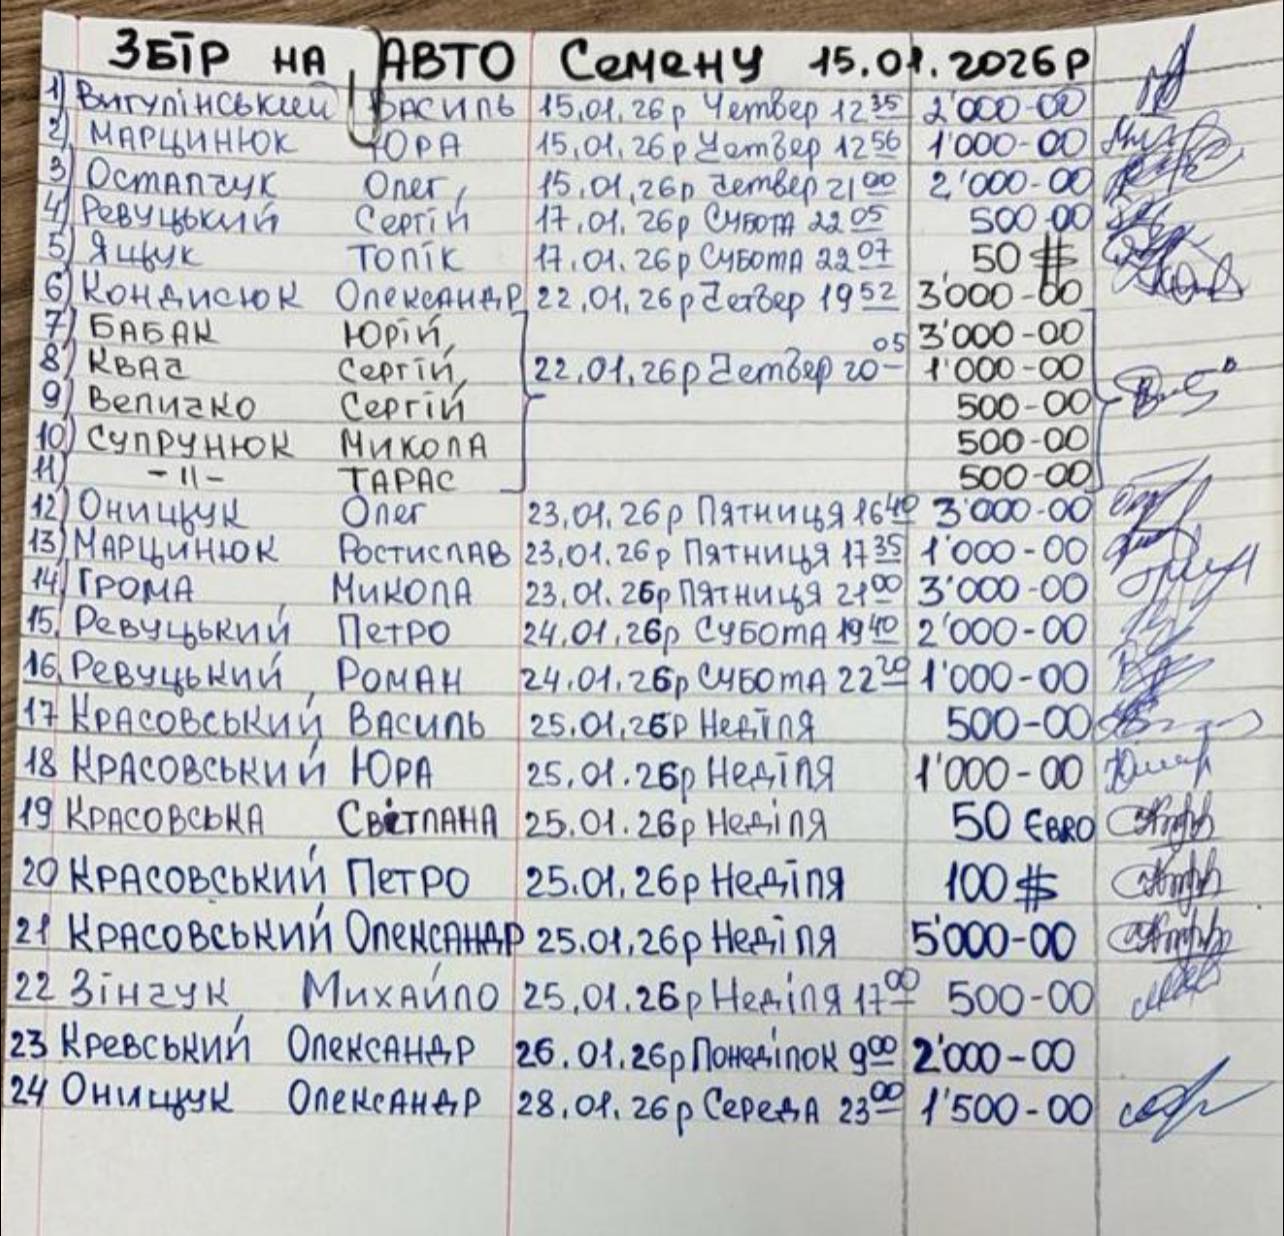 ЗБІР НА АВТО Семену 15.01.2026р
1) Вигулінський Василь 15.01.26р Четвер 12 35 2'000-00
2) Марцинюк Юра 15.01.26р Четвер 12 56 1'000-00
3) Остапчук Олег 15.01.26р Четвер 21 00 2'000-00
4) Ревуцький Сергій 17.01.26р Субота 22 05 500-00
5) Ящук Толік 17.01.26р Субота 22 07 50 $
6) Кондисюк Олександр 22.01.26р Четвер 19 52 3'000-00
7) Бабак Юрій 3'000-00
8) Квач Сергій 22.01.26р Четвер 20 05 1'000-00
9) Величко Сергій 500-00
10) Супрунюк Микола 500-00
11) -11- Тарас 500-00
12) Онищук Олег 23.01.26р Пятниця 16 40 3'000-00
13) Марцинюк Ростислав 23.01.26р Пятниця 17 35 1'000-00
14) Грома Микола 23.01.26р Пятниця 21 00 3'000-00
15. Ревуцький Петро 24.01.26р Субота 19 40 2'000-00
16. Ревуцький Роман 24.01.26р Субота 22 20 1'000-00
17 Красовський Василь 25.01.26р Неділя 500-00
18 Красовський Юра 25.01.26р Неділя 1'000-00
19 Красовська Світлана 25.01.26р Неділя 50 Євро
20 Красовський Петро 25.01.26р Неділя 100 $
21 Красовський Олександр 25.01.26р Неділя 5'000-00
22 Зінчук Михайло 25.01.26р Неділя 17 00 500-00
23 Кревський Олександр 26.01.26р Понеділок 9 00 2'000-00
24 Онищук Олександр 28.01.26р Середа 23 00 1'500-00